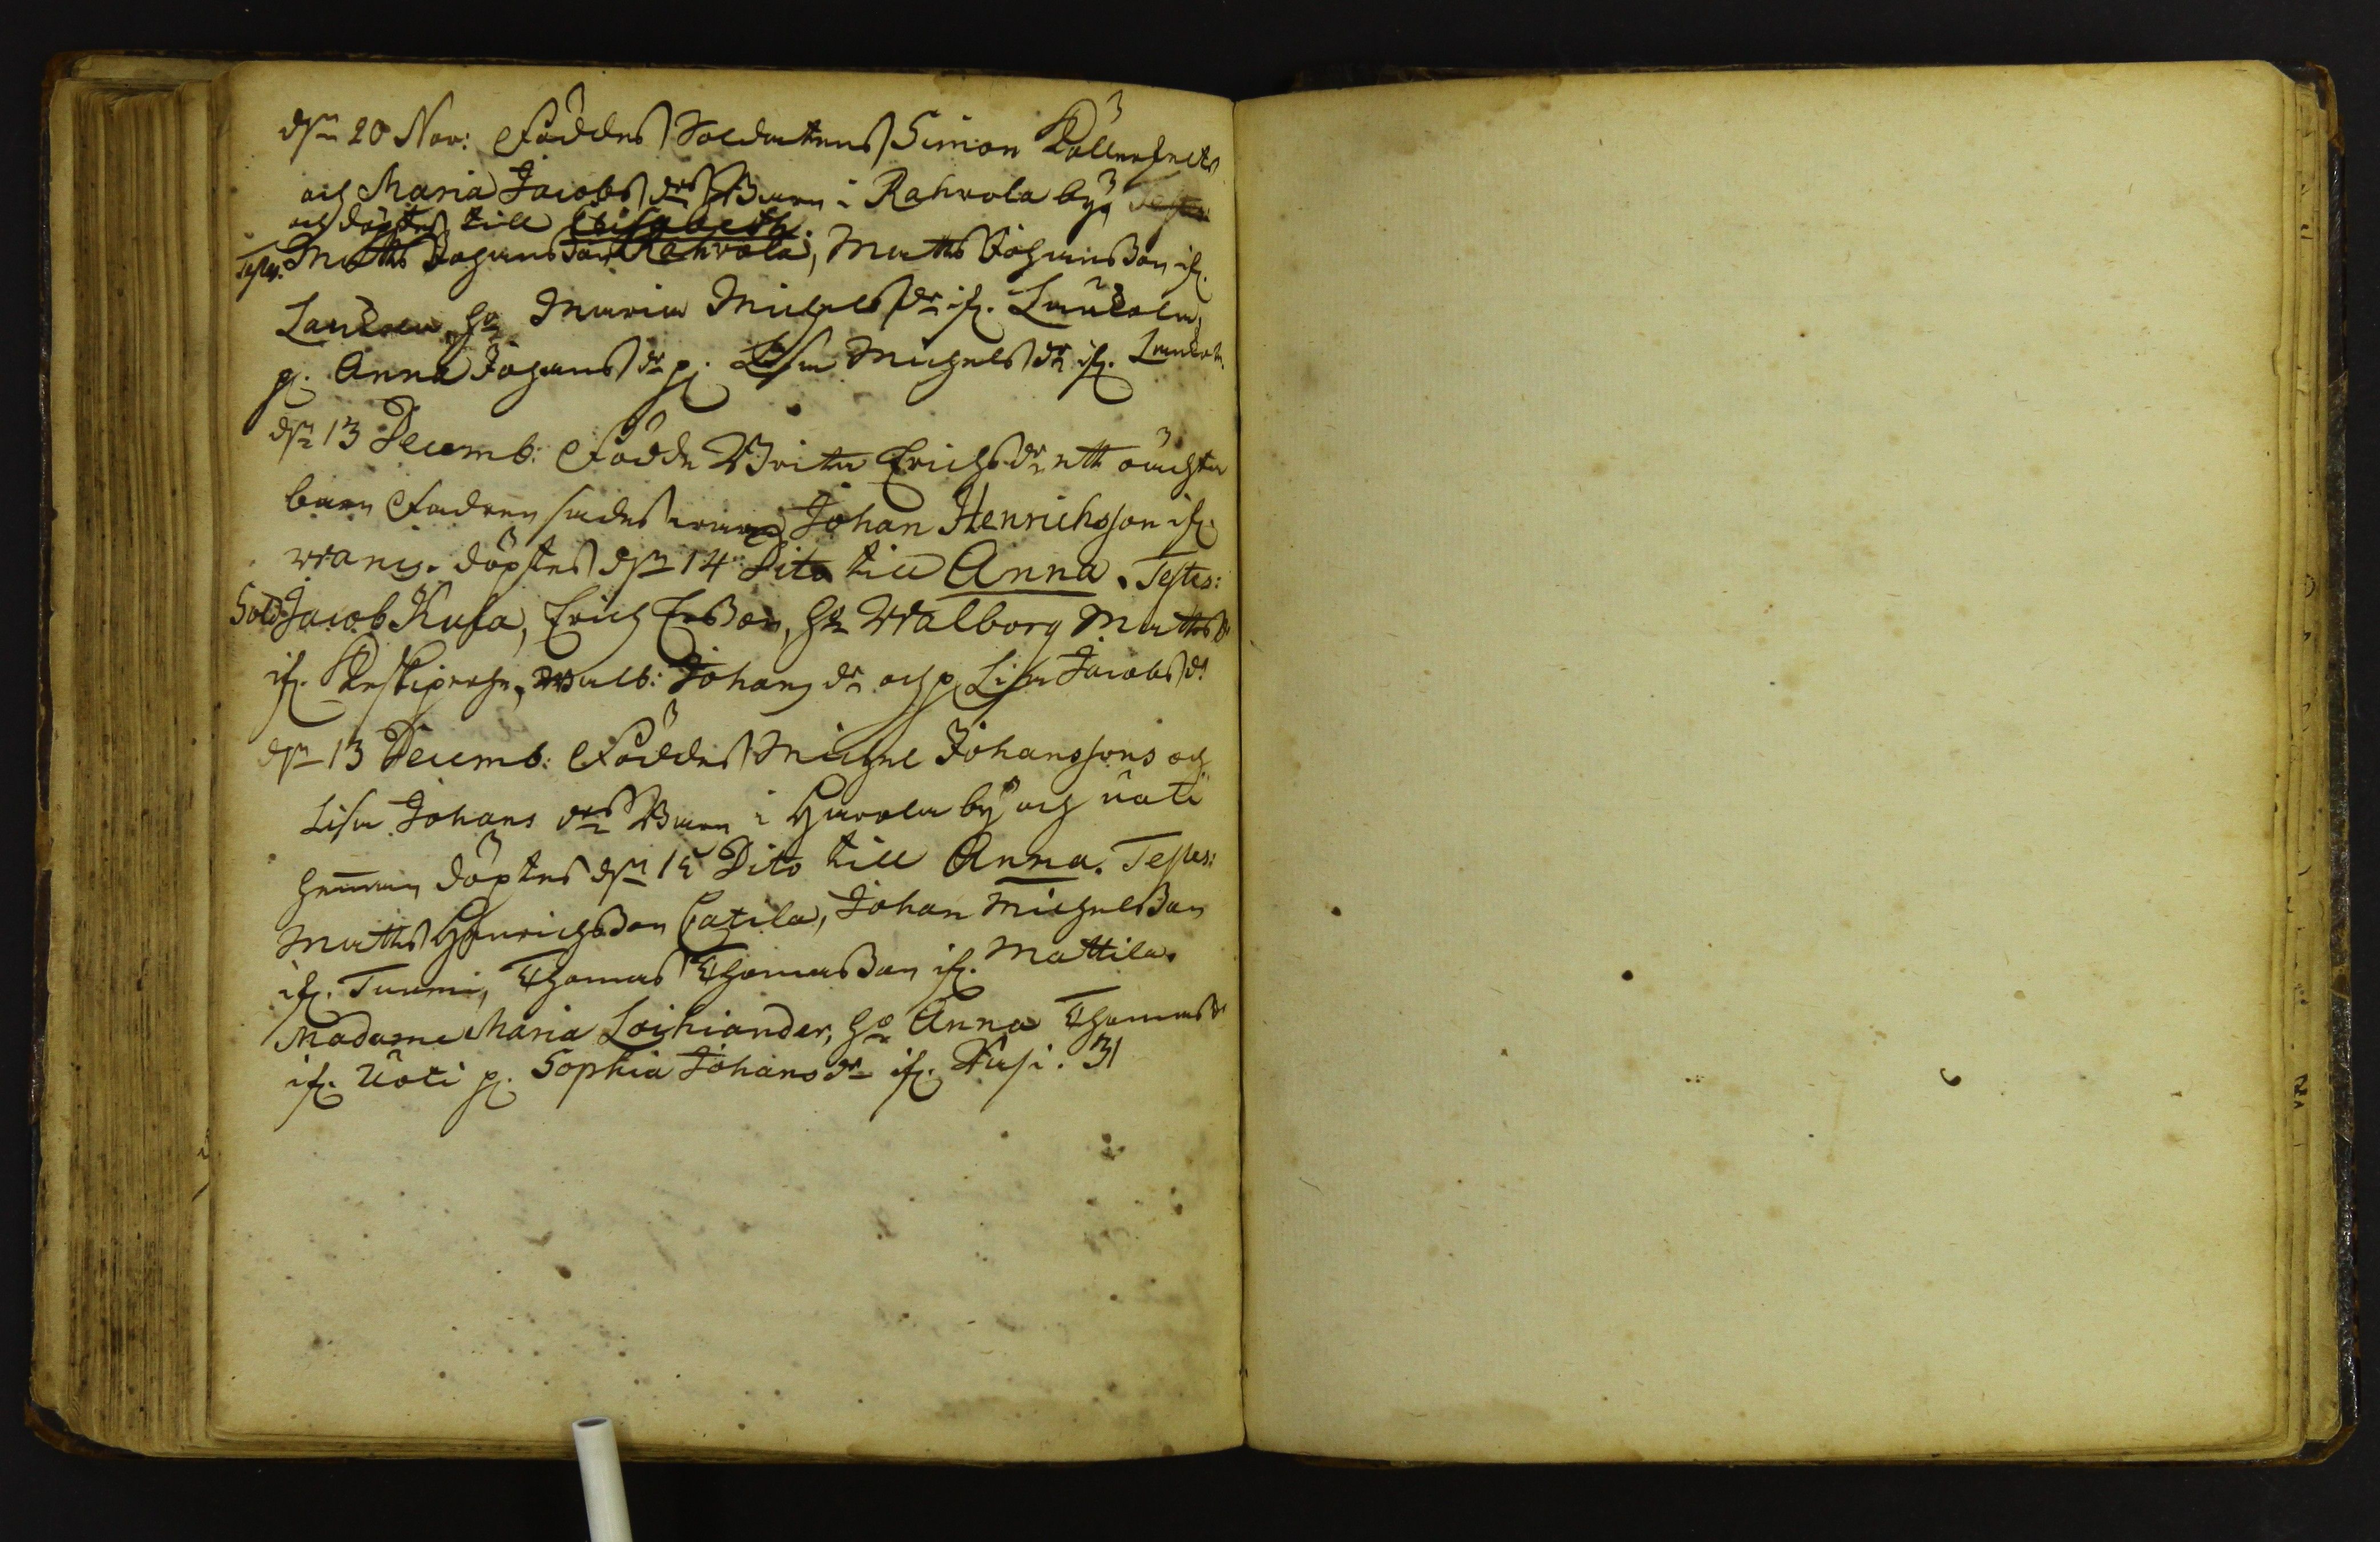 dn 20 Nov: Föddes Soldatens Simon
och Maria Jacobs drs Barn i Rahvola by
och döptes till Elisabeth.
Testes. Matts Johansson Rahvola, Matts Johansson if.
Laukola, Ho Maria Michels dr if. Laukola,
p. Anna Johans dr p. Lisa Michels dr if.
dn 13 Decemb: Födde Brita Erichs dr ett oächta
barn Fadren sades wara Johan Henrichsson if.
döptes dn 14 Dito till Anna. Testes:
Sold: Jacob Kufa, Erich Ersson, Ho Walborg Matts dr
if. Walb: Johans dr och p. Lisa Jacobs dr
dn 13 Decemb: Föddes Michel Johanssons och
Lisa Johans drs Barn i Harola by och Uoti
heman döptes dn 15 Dito till Anna. Testes:
Matts Henrichsson Catila, Johan Michelsson
if. Tuumi, Thomas Thomasson if. Mattila.
Madame Maria Loihiander, Ho Anna Thomas dr
if. Uoti p. Sophia Johans dr if. 31